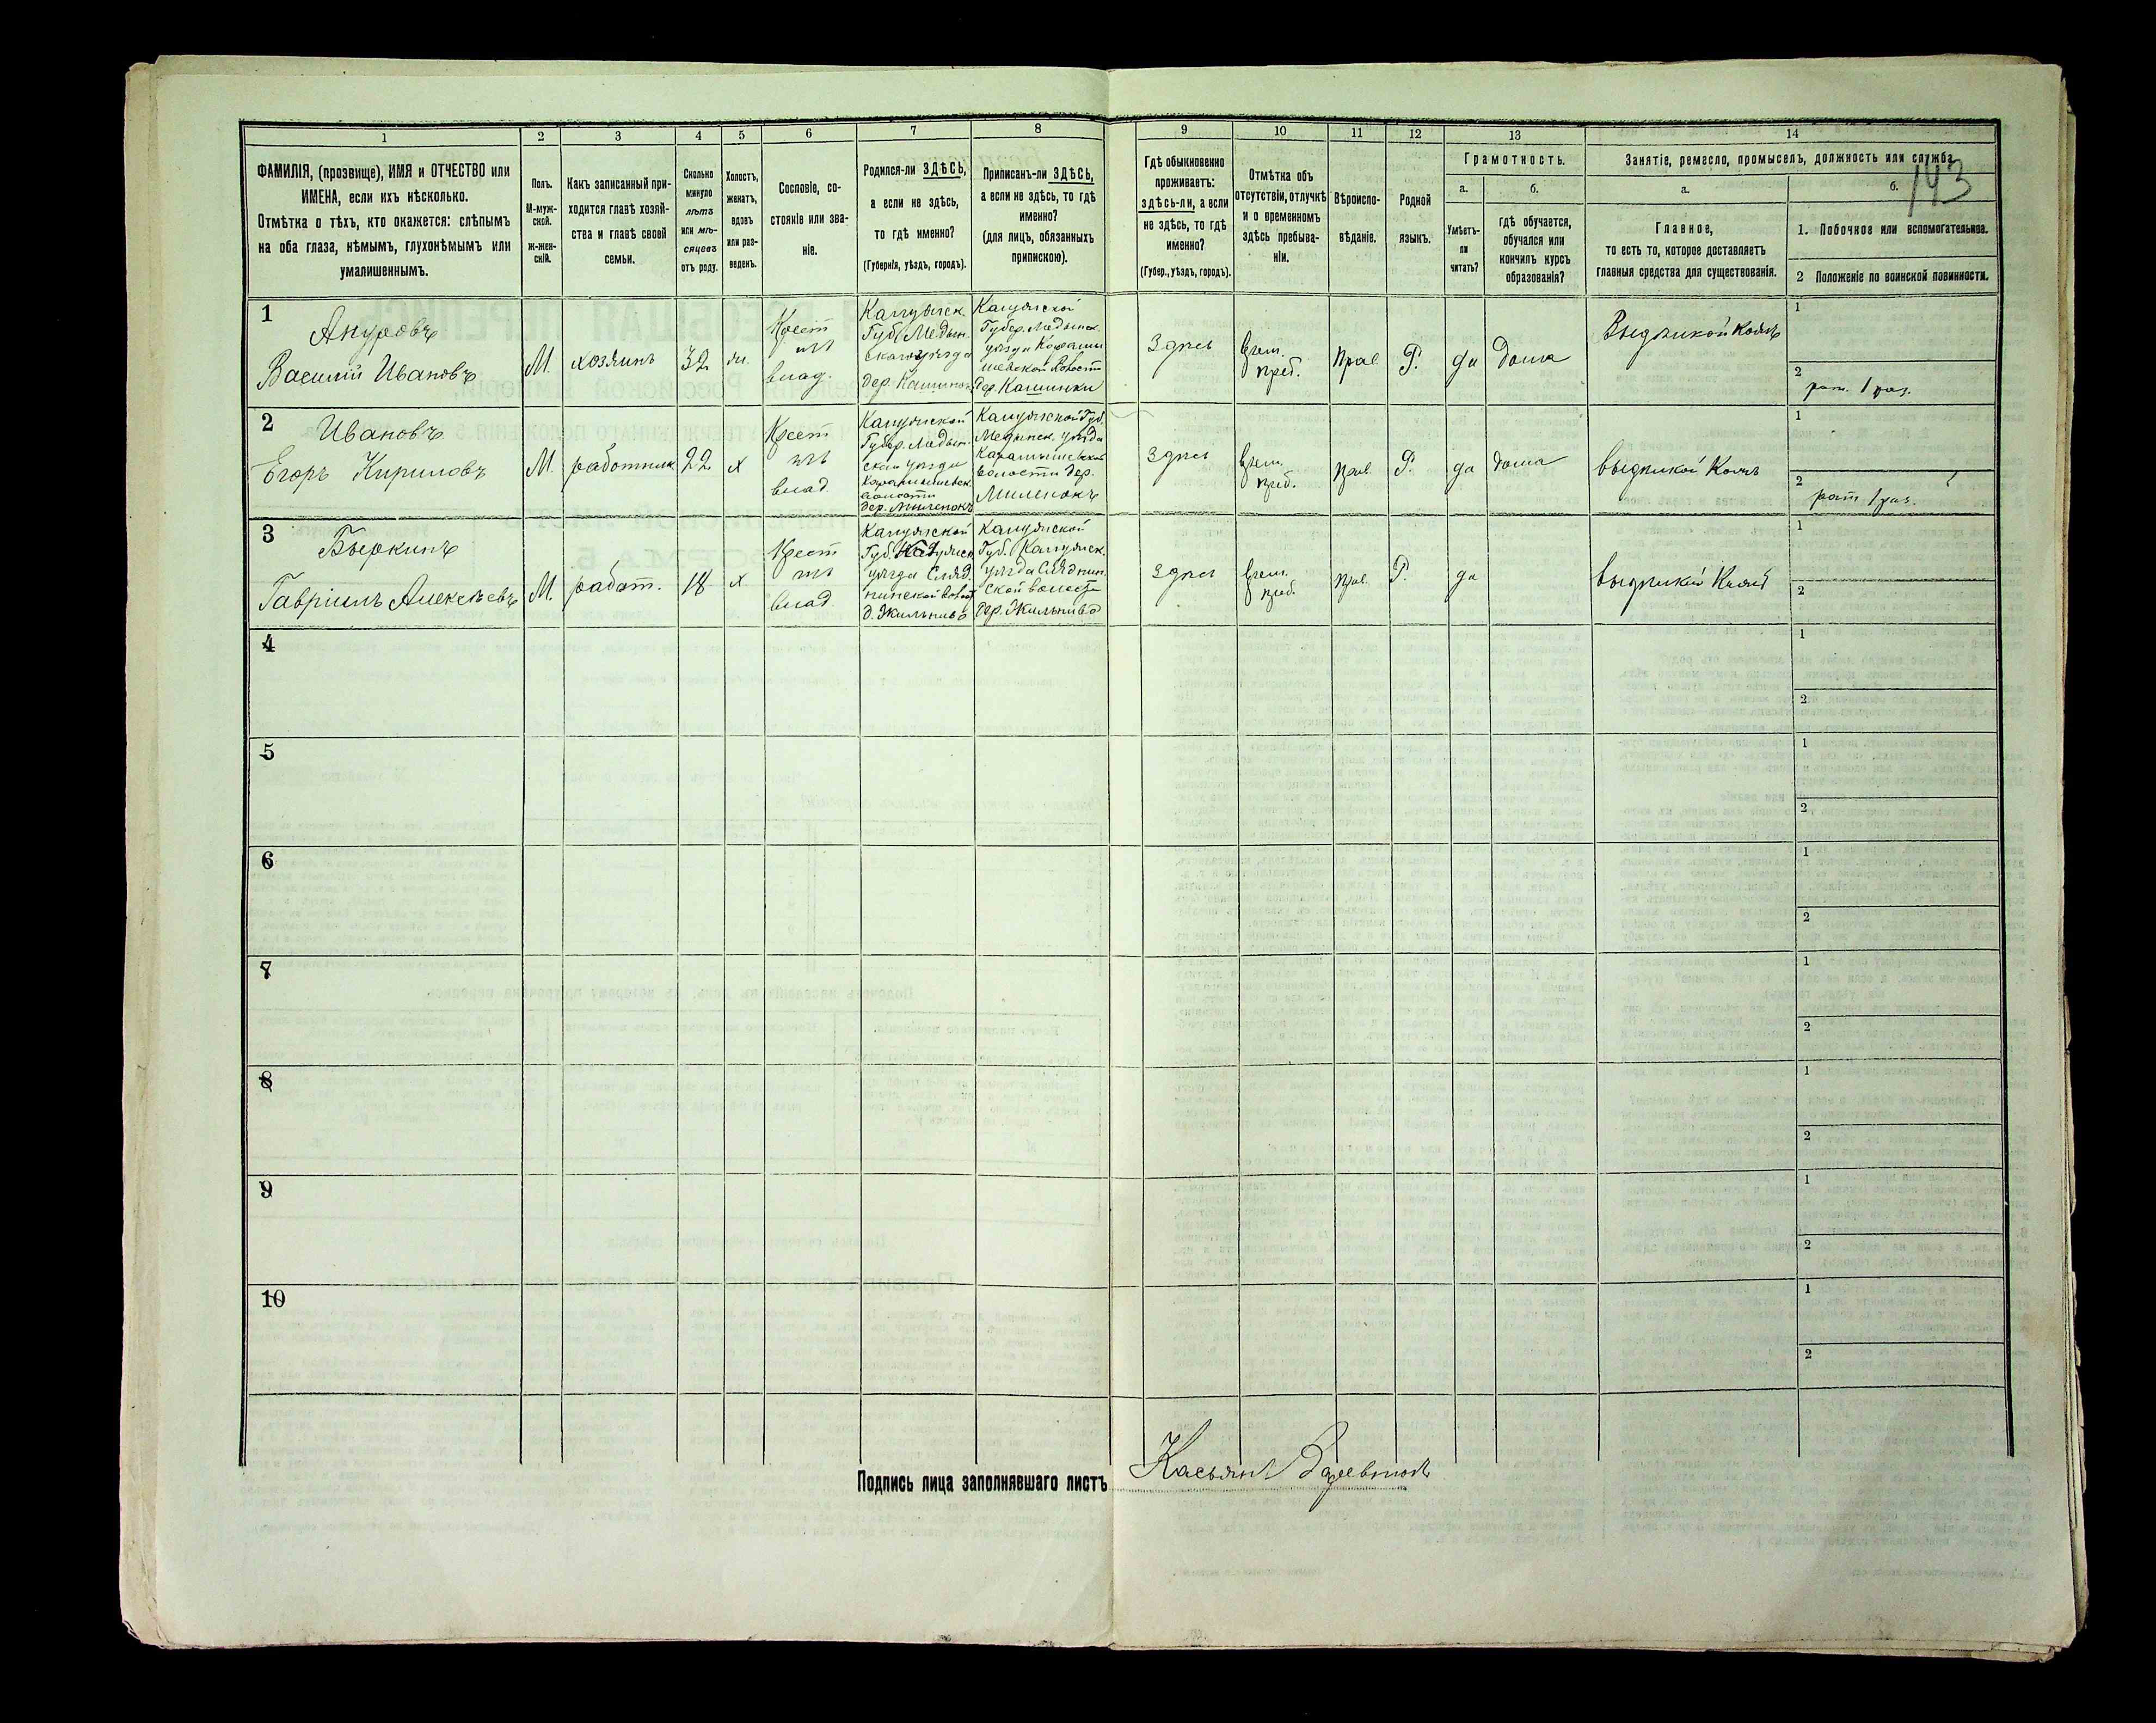 143
1 2 3 4 5 6 7 8 9 10 11 12 13 14
ФАМИЛІЯ, (прозвище), ИМЯ и ОТЧЕСТВО или
ИМЕНА, если ихъ нѣсколько.
Отмѣтка о тѣхъ, кто окажется: слѣпымъ
на оба глаза, нѣмымъ, глухонѣмымъ или
умалишеннымъ.
Полъ.
М-муж-
ской.
ж-жен-
скій.
Какъ записанный при-
ходится главѣ хозяй-
ства и главѣ своей
семьи.
Сколько
минуло
лѣтъ
или мѣ-
сяцевъ
отъ роду.
Холостъ,
женатъ,
вдовъ
или раз-
веденъ.
Сословіе, со-
стояніе или зва-
ніе.
Родился-ли ЗДѢСЬ,
а если не здѣсь,
то гдѣ именно?
(Губернія, уѣздъ, городъ).
Приписанъ-ли ЗДѢСЬ,
а если не здѣсь, то гдѣ
именно?
(для лицъ, обязанныхъ
припискою).
Гдѣ обыкновенно
проживаетъ:
здѣсь-ли, а если
не здѣсь, то гдѣ
именно?
(Губер., уѣздъ, городъ).
Отмѣтка объ
отсутствіи, отлучкѣ
и о временномъ
здѣсь пребыва-
ніи.
Вѣроиспо-
вѣданіе.
Родной
языкъ.
Грамотность.
а.
Умѣетъ-
ли
читать?
б.
гдѣ обучается,
обучался или
кончилъ курсъ
образованія?
Занятіе, ремесло, промыселъ, должность или служба
а.
Главное,
то есть то, которое доставляетъ
главныя средства для существованія.
б.
1. Побочное или вспомогательное.
2 Положеніе по воинской повинности.
1
Ануровъ
Василій Ивановъ
М.
хозяинъ
32
жн.
Крест
изъ
влад.
Калужск.
Губ. Медын.
скаго уѣзда
Калужской
Губер. Медынск.
дер. Кашинки
Здѣсь
врем.
преб.
прав.
Р.
да
дома
1
2
рат. 1 раз.
2
Ивановъ
Егоръ Кириловъ
М.
работник
22
х
Крест
изъ
влад.
Калужской
Губер. Медын.
скаго уѣзда
дер. Миленокъ
Калужской Губ.
Медынск. уѣзда
волости дер.
Миленокъ
Здѣсь
врем.
преб.
прав.
Р.
да
дома
1
2
рат 1 раз.
3
Гавріилъ Алексѣевъ
М.
работ.
18
х
Крест
изъ
влад
Калужской
уѣзда
Калужской
Губ. Калужск.
Здѣсь
врем.
преб.
прав.
Р.
да
1
2
4
1
2
5
1
2
6
1
2
7
1
2
8
1
2
9
1
2
10
1
2
Подпись лица заполнявшаго листъ Касьянъ